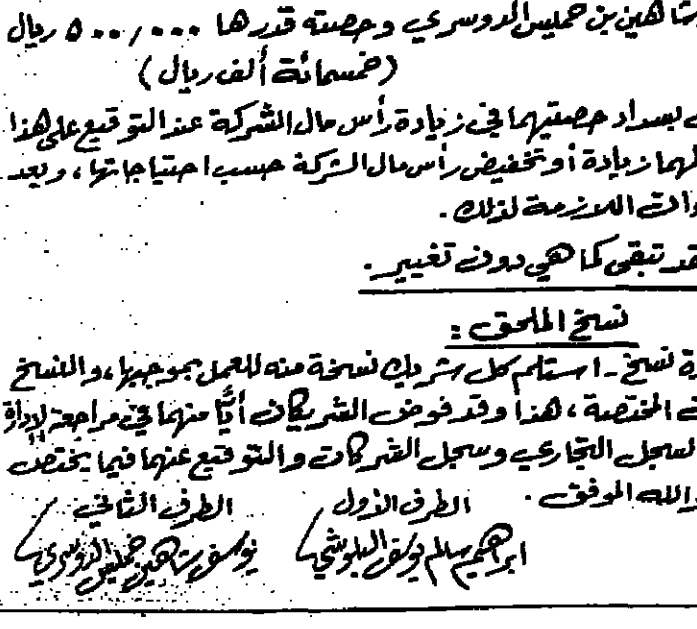 شاهين بن خميس الدوسري وحصته قدرها ٥٠٠/٠٠٠ ريال
(خمسمائة ألف ريال)
بسداد حصتيهما في زيادة رأس مال الشركة عند التوقيع على هذا
لهما زيادة أو تخفيض رأس مال الشركة حسب احتياجاتها، وبعد
اللازمة لذلك.
تبقى كما هي دون تغيير.
نسخ الملحق:
نسخ - استلم كل شريك نسخة منه للعمل بموجبها، والنسخ
المختصة، هذا وقد فوض الشريكان أيًّا منهما في مراجعة إدارة
السجل التجاري وسجل الشركات والتوقيع عنهما فيما يختص
والله الموفق.
الطرف الأول
الطرف الثاني
ابراهيم سالم يوسف البلوشي
يوسف شاهين خميس الدوسري